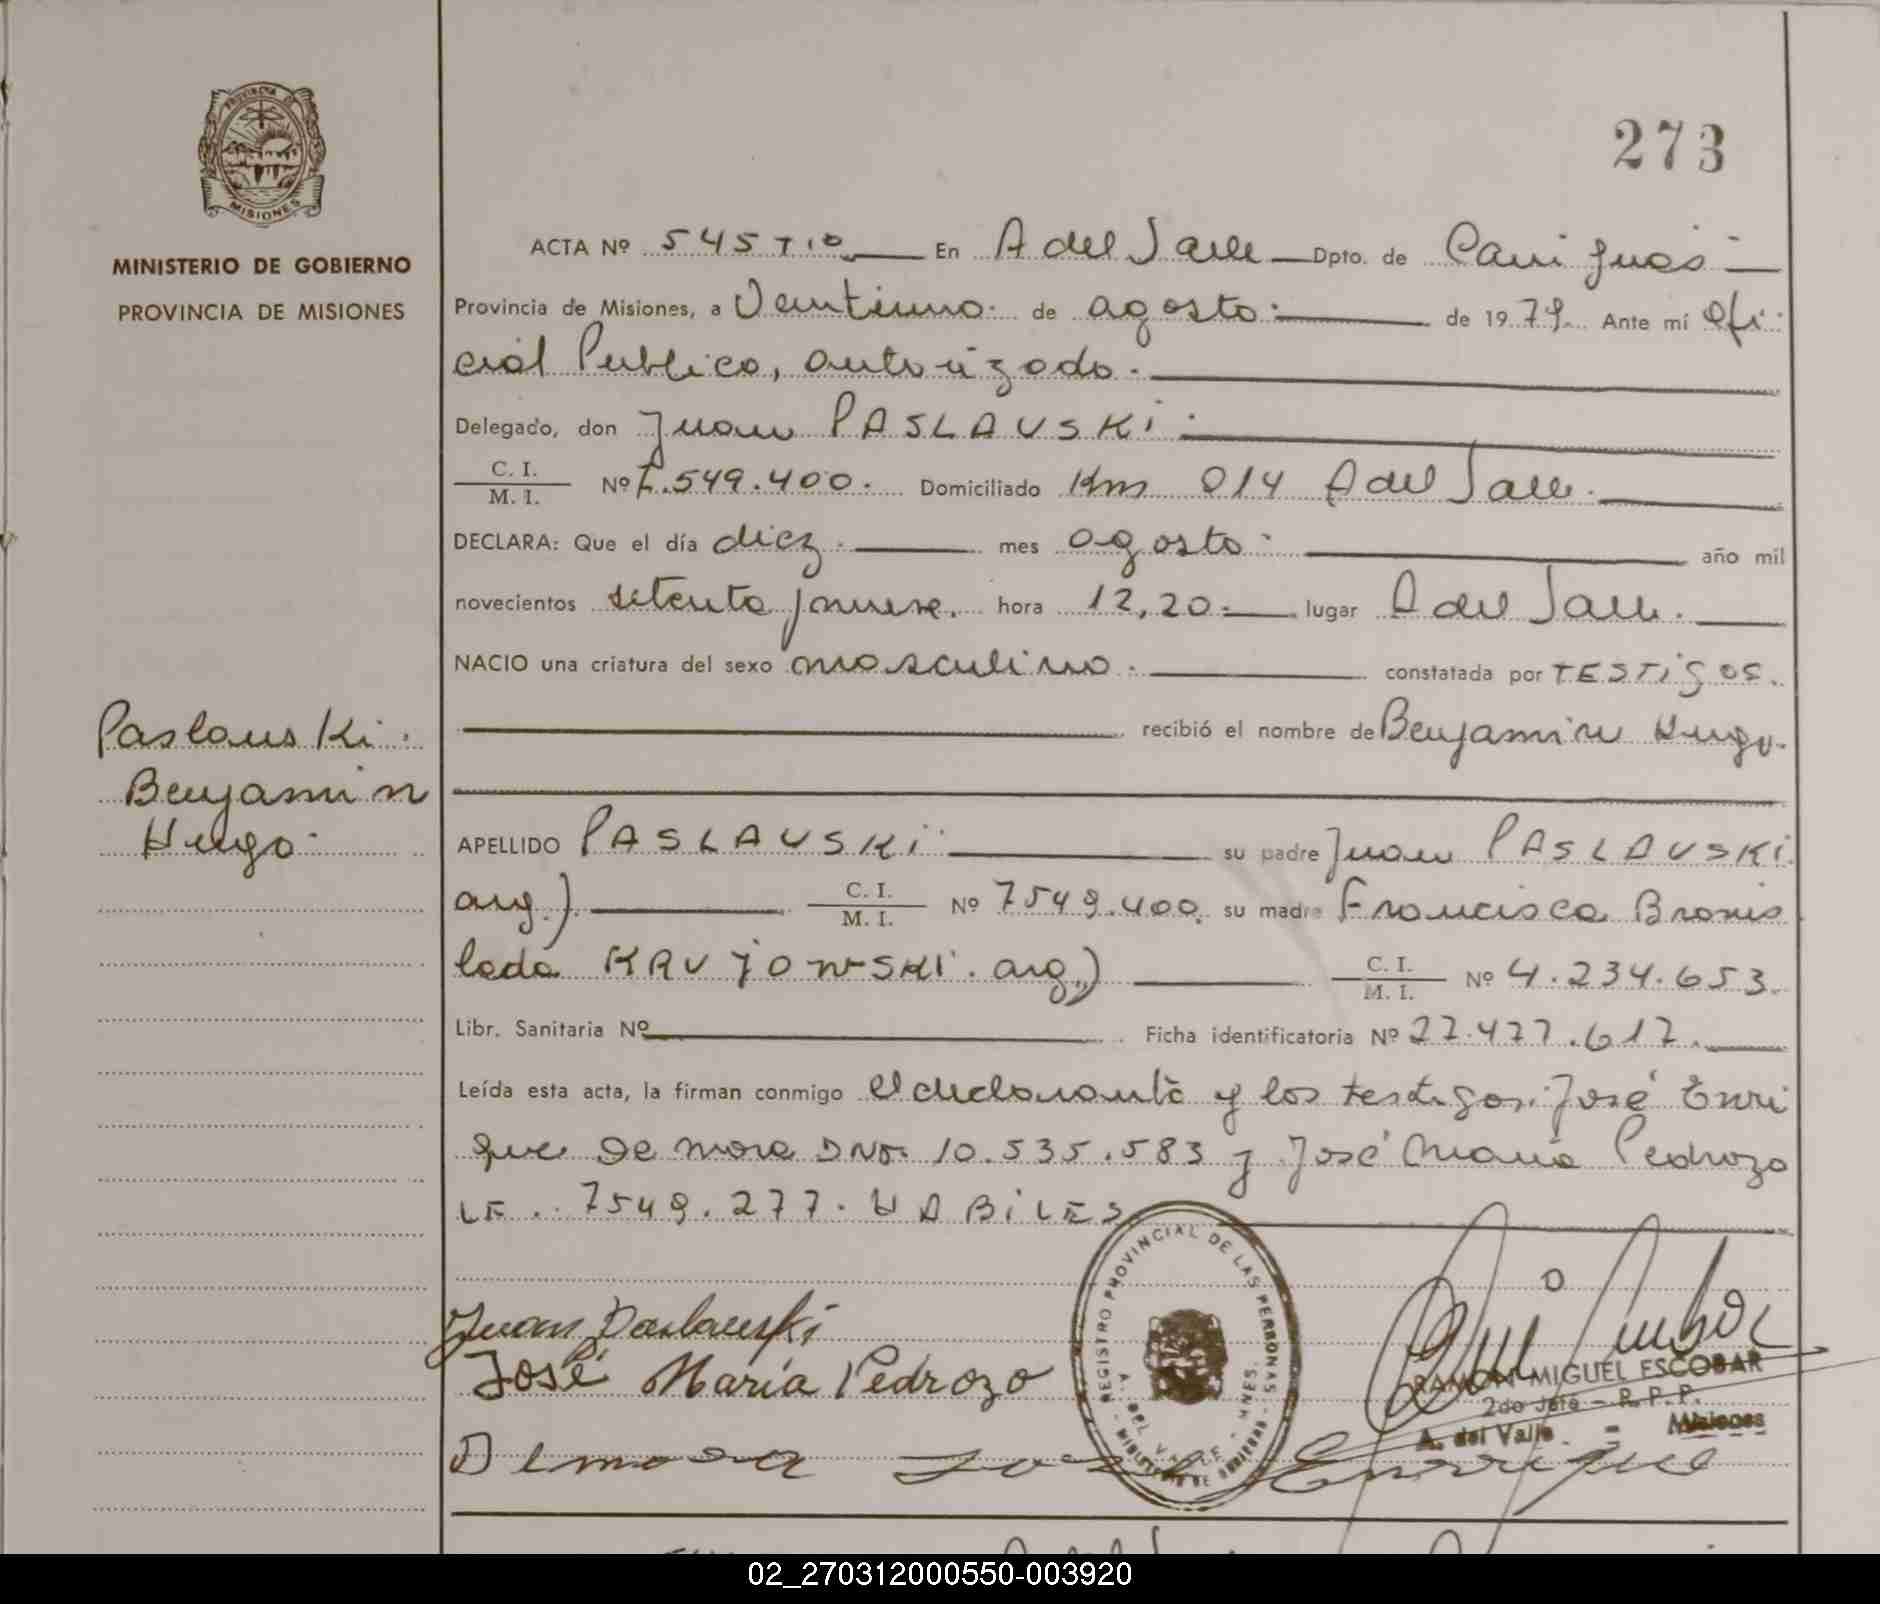 PROVINCIA DE
MISIONES
MINISTERIO DE GOBIERNO
PROVINCIA DE MISIONES
273
ACTA Nº 545 T 10 En A del Valle Dpto. de Cainguas
Provincia de Misiones, a Veintiuno de agosto de 1979. Ante mí Ofi
cial Publico, autorizado.
Delegado, don Juan PASLAUSKi
C. I. / M. I. Nº 7.549.400. Domiciliado Km 014 A del Valle.
DECLARA: Que el día diez mes agosto año mil
novecientos setenta y nueve. hora 12,20 lugar A del Valle.
NACIO una criatura del sexo masculino. constatada por TESTiGOS.
recibió el nombre de Benjamin Hugo.
Paslauski.
Benjamin
Hugo
APELLIDO PASLAUSKi su padre Juan PASLAUSKi
arg.) C. I. / M. I. Nº 7549.400. su madre Francisca Bronis
lada KRUJOWSKI. arg.) C. I. / M. I. Nº 4.234.653.
Libr. Sanitaria Nº Ficha identificatoria Nº 27.477.617.
Leída esta acta, la firman conmigo el declarante y los testigos. José Enri
que De mora DNI. 10.535.583 y José Maria Pedrozo
LE. 7549.277. HABiLES
Juan Paslauski
José María Pedrozo
Demora José Enrrique
REGISTRO PROVINCIAL DE LAS PERSONAS
A. DEL VALLE - MNES.
MINISTERIO DE GOBIERNO
RAMON MIGUEL ESCOBAR
2do Jefe - R. P. P.
A. del Valle - Misiones
02_270312000550-003920